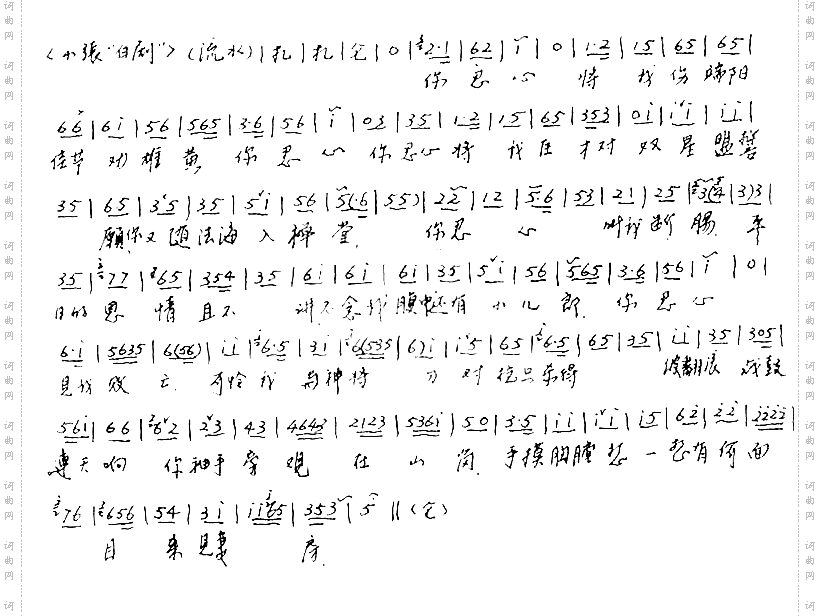 <小張"白剧"> (流水) | 扎 | 扎 | 仓 | 0 | 2·1 | 62 | i | 0 | 1·2 | 15 | 65 | 65 |
你 忍 心 将 我 伤 端阳
66 | 6i | 56 | 565 | 3·6 | 56 | i | 03 | 35 | 1·2 | 15 | 65 | 353 | 0i | ii | ii |
佳节 劝 雄 黄 你 忍 心 你 忍心 将 我 在 才对 双 星 盟誓
35 | 65 | 3·5 | 35 | 5i | 56 | 5(·6 | 55) | 22 | 12 | 5·6 | 53 | 21 | 25 | 3(4 | 3)3 |
願你又 随法海 入 禅 堂 你忍 心 叫我断 腸 平
35 | 77 | 65 | 354 | 35 | 6i | 6i | 6i | 35 | 5i | 56 | 565 | 3·6 | 56 | i | 0 |
日的 恩 情 且不 讲 不念我 腹中还有 小 儿 郎 你 忍 心
6·i | 5635 | 6(56) | ii | 6·5 | 3i | 6(535 | 6)i | i·5 | 65 | 6·5 | 65 | 35 | ii | 35 | 305 |
見我 败 亡 可怜 我 与神将 刀 对 枪只杀得 波翻浪 战鼓
56i | 66 | 62 | 23 | 43 | 4643 | 2123 | 5361 | 50 | 3·5 | ii | ii | i5 | 62 | 22 | 2222 |
连天响 你袖手 旁 观 在 山 崗 手摸胸膛 想 一 想有 何 面
76 | 656 | 54 | 3i | ii65 | 353 | 5 || (仓)
目 来 見妻 房
词曲网
词曲网